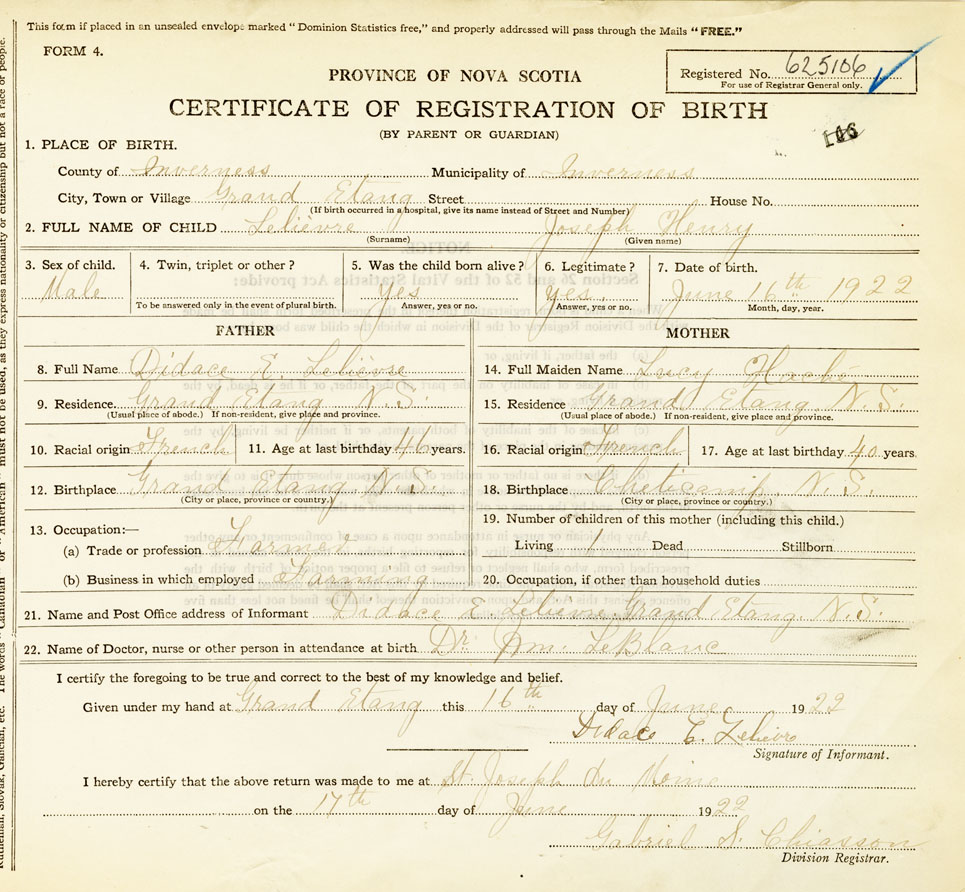 This form if placed in an unsealed envelope marked "Dominion Statistics free," and properly addressed will pass through the Mails "FREE."
FORM 4.
PROVINCE OF NOVA SCOTIA
Registered No. 625106
For use of Registrar General only.
CERTIFICATE OF REGISTRATION OF BIRTH
(BY PARENT OR GUARDIAN)
106
1. PLACE OF BIRTH.
County of Inverness Municipality of Inverness
City, Town or Village Grand Etang Street House No.
(If birth occurred in a hospital, give its name instead of Street and Number)
2. FULL NAME OF CHILD Lelièvre Joseph Henry
(Surname) (Given name)
3. Sex of child. 4. Twin, triplet or other? 5. Was the child born alive? 6. Legitimate? 7. Date of birth.
Male yes yes. June 16th 1922
To be answered only in the event of plural birth. Answer, yes or no. Answer, yes or no. Month, day, year.
FATHER MOTHER
8. Full Name Didace E. Lelièvre 14. Full Maiden Name Lucy Haché
9. Residence Grand Etang N.S. 15. Residence Grand Etang N.S.
(Usual place of abode.) If non-resident, give place and province. (Usual place of abode.) If non-resident, give place and province.
10. Racial origin French 11. Age at last birthday 46 years. 16. Racial origin French 17. Age at last birthday 40 years.
12. Birthplace Grand Etang N.S. 18. Birthplace Cheticamp N.S.
(City or place, province or country.) (City or place, province or country.)
13. Occupation:— 19. Number of children of this mother (including this child.)
(a) Trade or profession Farmer Living 1 Dead Stillborn
(b) Business in which employed Farming 20. Occupation, if other than household duties
21. Name and Post Office address of Informant Didace E. Lelièvre, Grand Etang. N.S.
22. Name of Doctor, nurse or other person in attendance at birth Dr. Wm. LeBlanc
I certify the foregoing to be true and correct to the best of my knowledge and belief.
Given under my hand at Grand Etang this 16th day of June 1922
Didace E. Lelievre
Signature of Informant.
I hereby certify that the above return was made to me at St. Joseph du Moine
on the 17th day of June 1922
Gabriel S. Chiasson
Division Registrar.